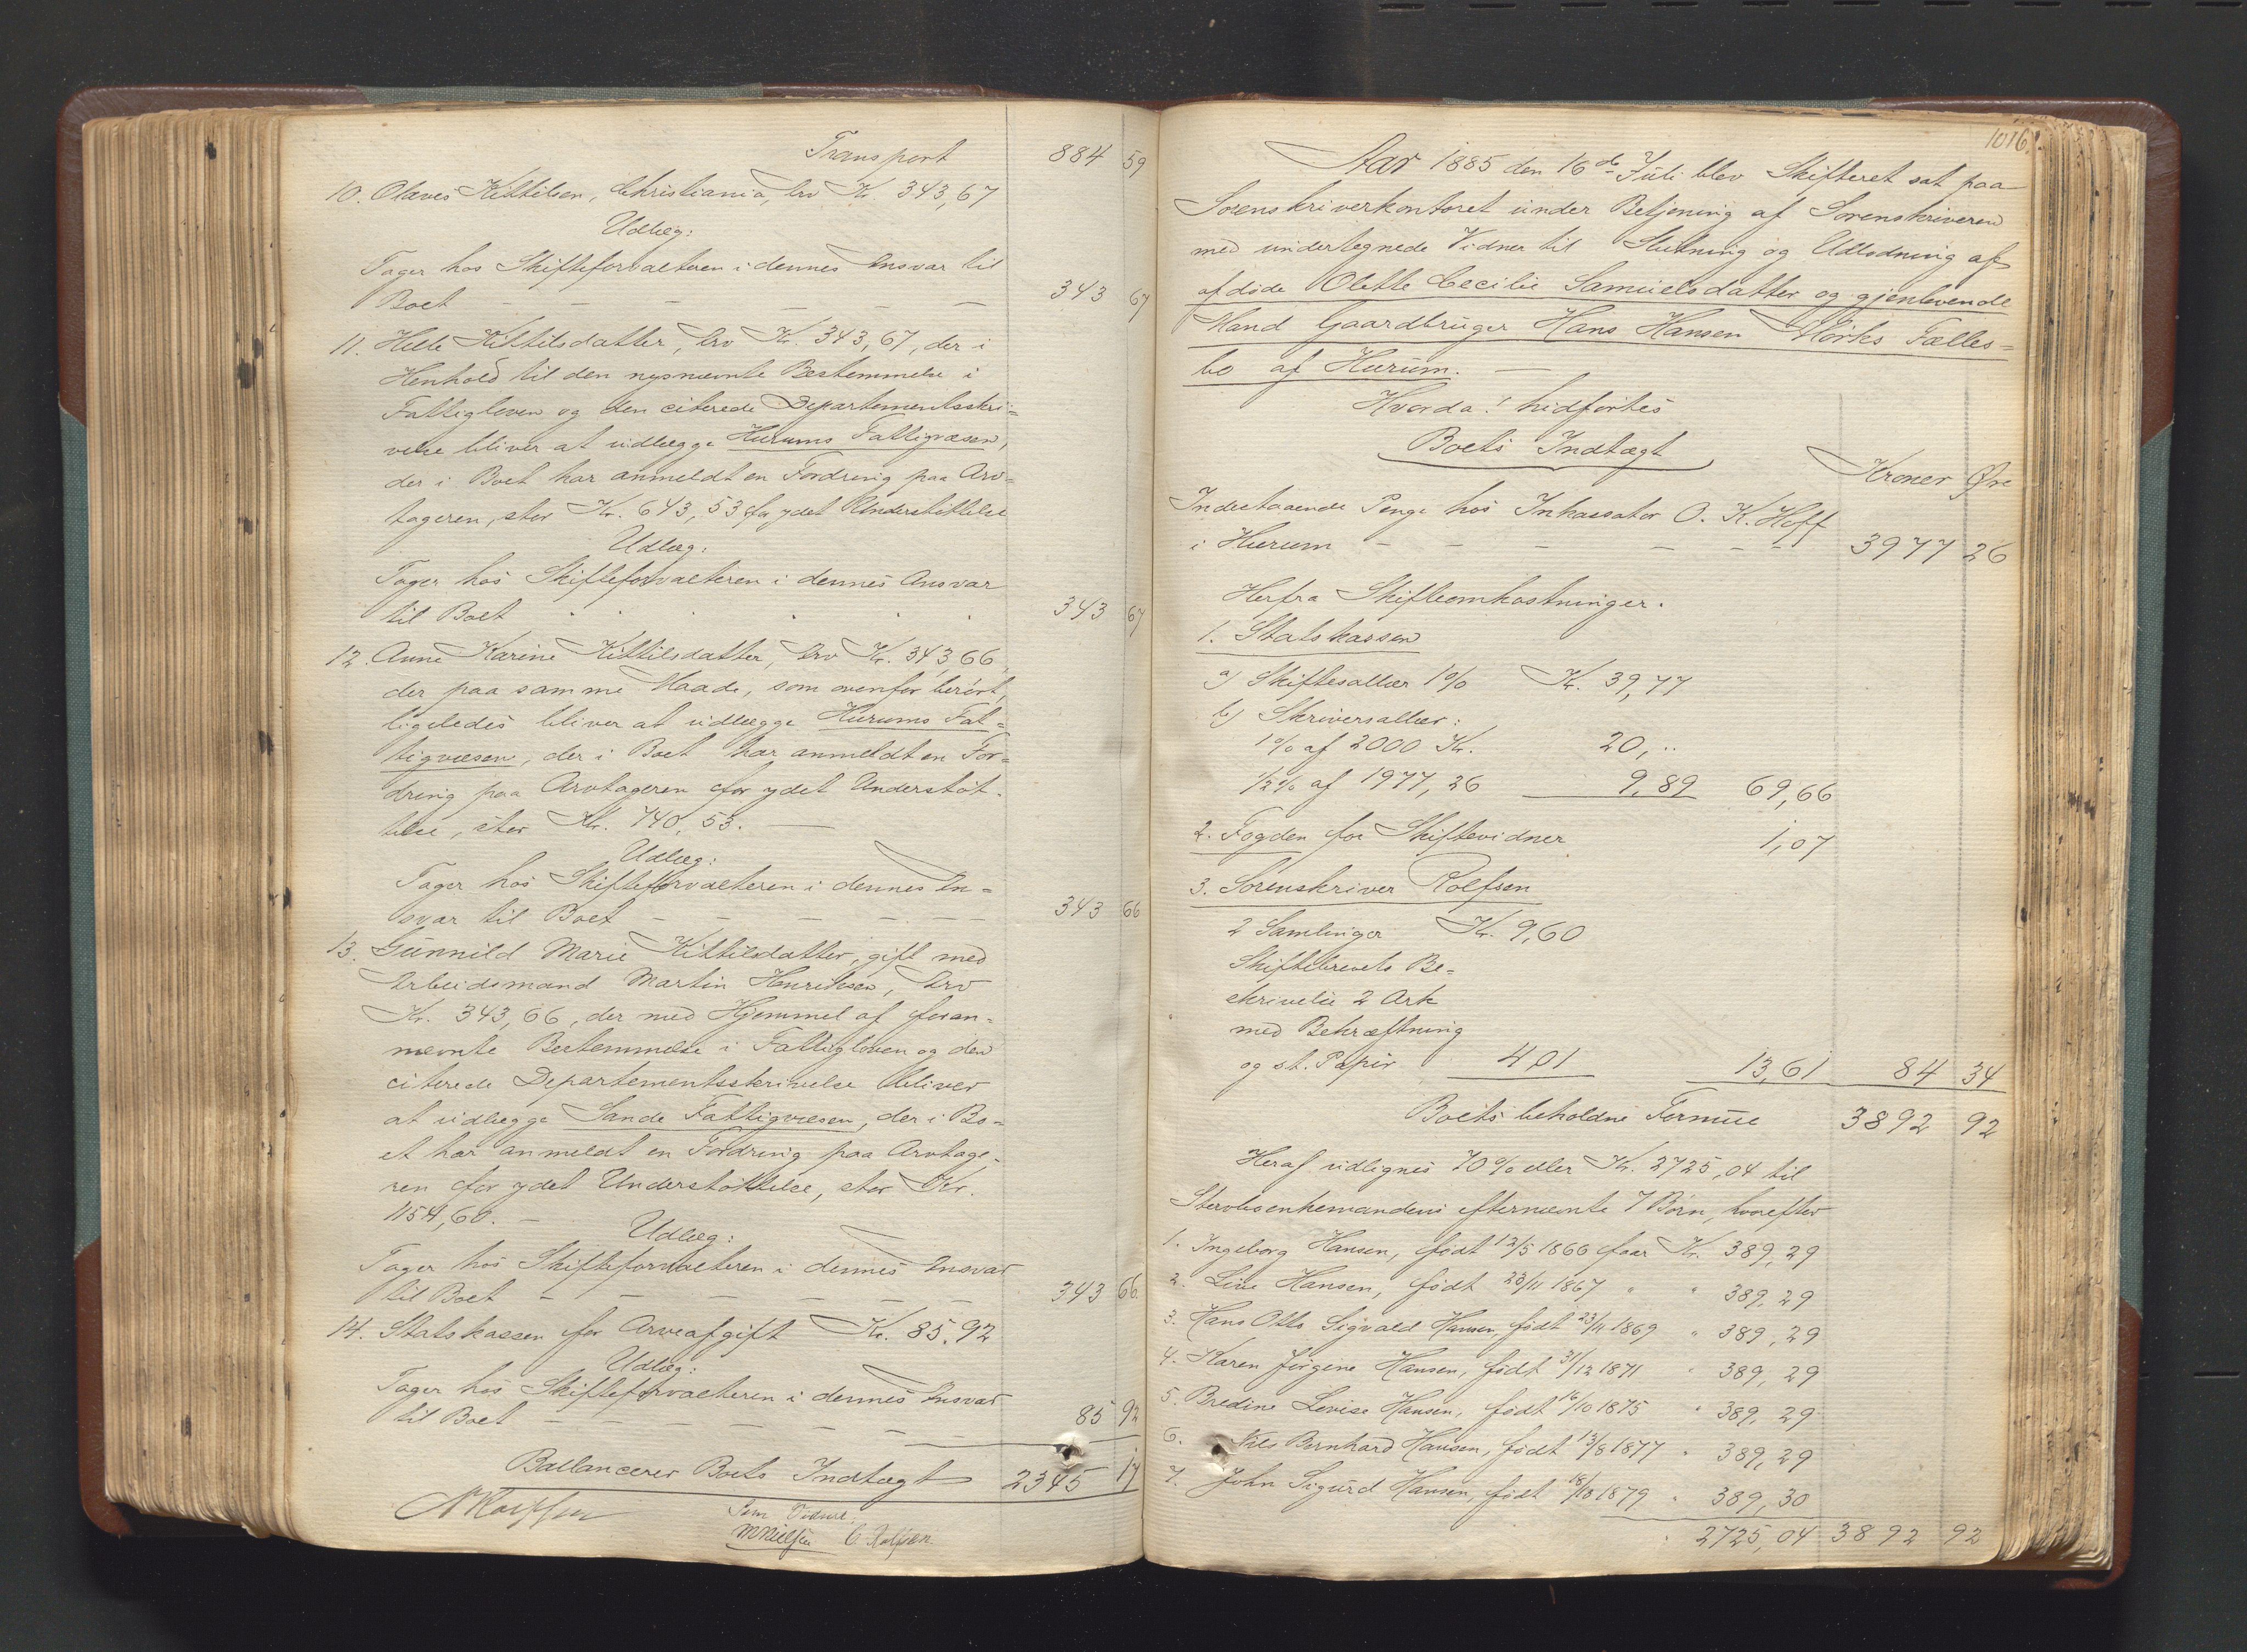 Transport 884 59
10. Olaves Kittilsen, Christiania, Arv Kr. 343,67
Udlæg:
Tager hos Skifteforvalteren i dennes Ansvar til
Boet — — — — — 343 67
11. Helle Kittilsdatter, Arv Kr. 343,67, der i
Henhold til den nysnævnte Bestemmelse i
Fattigloven og den citerede Departementsskri=
velse bliver at udlægge Hurums Fattigvæsen,
der i Boet har anmeldt en Fordring paa Arv=
tageren, stor Kr. 643,53 for ydet Understøttelse
Udlæg:
Tager hos Skifteforvalteren i dennes Ansvar
til Boet . . . . . 343 67
12. Anne Karine Kittilsdatter, Arv Kr. 343,66,
der paa samme Maade, som ovenfor berørt,
ligeledes bliver at udlægge Hurums Fat=
tigvæsen, der i Boet har anmeldt en For=
dring paa Arvtageren for ydet Understøt=
telse, stor Kr. 740,53. —
Udlæg:
Tager hos Skifteforvalteren i dennes An=
svar til Boet — — — — — — 343 66
13. Gunnild Marie Kittilsdatter, gift med
Arbeidsmand Martin Henriksen, Arv
Kr. 343,66, der med Hjemmel af foran=
nævnte Bestemmelse i Fattigloven og den
citerede Departementsskrivelse bliver
at udlægge Sande Fattigvæsen, der i Bo=
et har anmeldt en Fordring paa Arvtage=
ren for ydet Understøttelse, stor Kr.
1154,60. —
Udlæg:
Tager hos Skifteforvalteren i dennes Ansvar
til Boet — — — — — — 343 66
14. Statskassen for Arveafgift Kr. 85,92
Udlæg:
Tager hos Skifteforvalteren i dennes Ansvar
til Boet — — — — — — 85 92
Ballancerer Boets Indtægt 2345 17
Som Vidner:
MNielsen C. Rolfsen
1016.
Aar 1885 den 16de Juli blev Skifteret sat paa
Sorenskriverkontoret under Betjening af Sorenskriveren
med undertegnede Vidner til Slutning og Udlodning af
afdøde Olette Cecilie Samuelsdatter og gjenlevende
Mand Gaardbruger Hans Hansen Mørks Fælles=
bo af Hurum. —
Hvorda! hidførtes
Boets Indtægt
Kroner Øre
Indestaaende Penge hos Inkassator O. K. Hoff
i Hurum — — — — — — 3977 26
Herfra Skifteomkostninger.
1. Statskassen
a) Skiftesallær 1% Kr. 39,77
b) Skriversallær:
1% af 2000 Kr. 20, ..
1/2% af 1977,26 9,89 69,66
2. Fogden for Skiftevidner 1,07
3. Sorenskriver Rolfsen
2 Samlinger Kr. 9,60
Skiftebrevets Be=
skrivelse 2 Ark
med Bekræftning
og st. Papir 4,01 13,61 84 34
Boets beholdne Formue 3892 92
Heraf udlignes 70% eller Kr. 2725,04 til
Stervboenkemandens efternævnte 7 Børn, hvorefter
1. Ingeborg Hansen, født 12/5 1866 faar Kr. 389,29
2. Hansen, født 23/11 1867 " " 389,29
3. Hans Otto Sigvald Hansen, født 23/11 1869 " 389,29
4. Karen Jørgine Hansen, født 31/12 1871 " 389,29
5. Bredine Hansen, født 16/10 1875 " 389,29
6. Nils Bernhard Hansen, født 13/8 1877 " 389,29
7. John Sigurd Hansen, født 1879 " 389,30
2725,04 3892 92